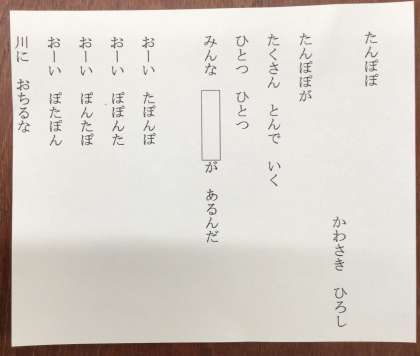 たんぽぽ
かわさき　ひろし
たんぽぽが
たくさん　とんで　いく
ひとつ　ひとつ
みんな　　　　が　あるんだ
おーい　たぽんぽ
おーい　ぽぽんた
おーい　ぽんたぽ
おーい　ぽたぽん
川に　おちるな